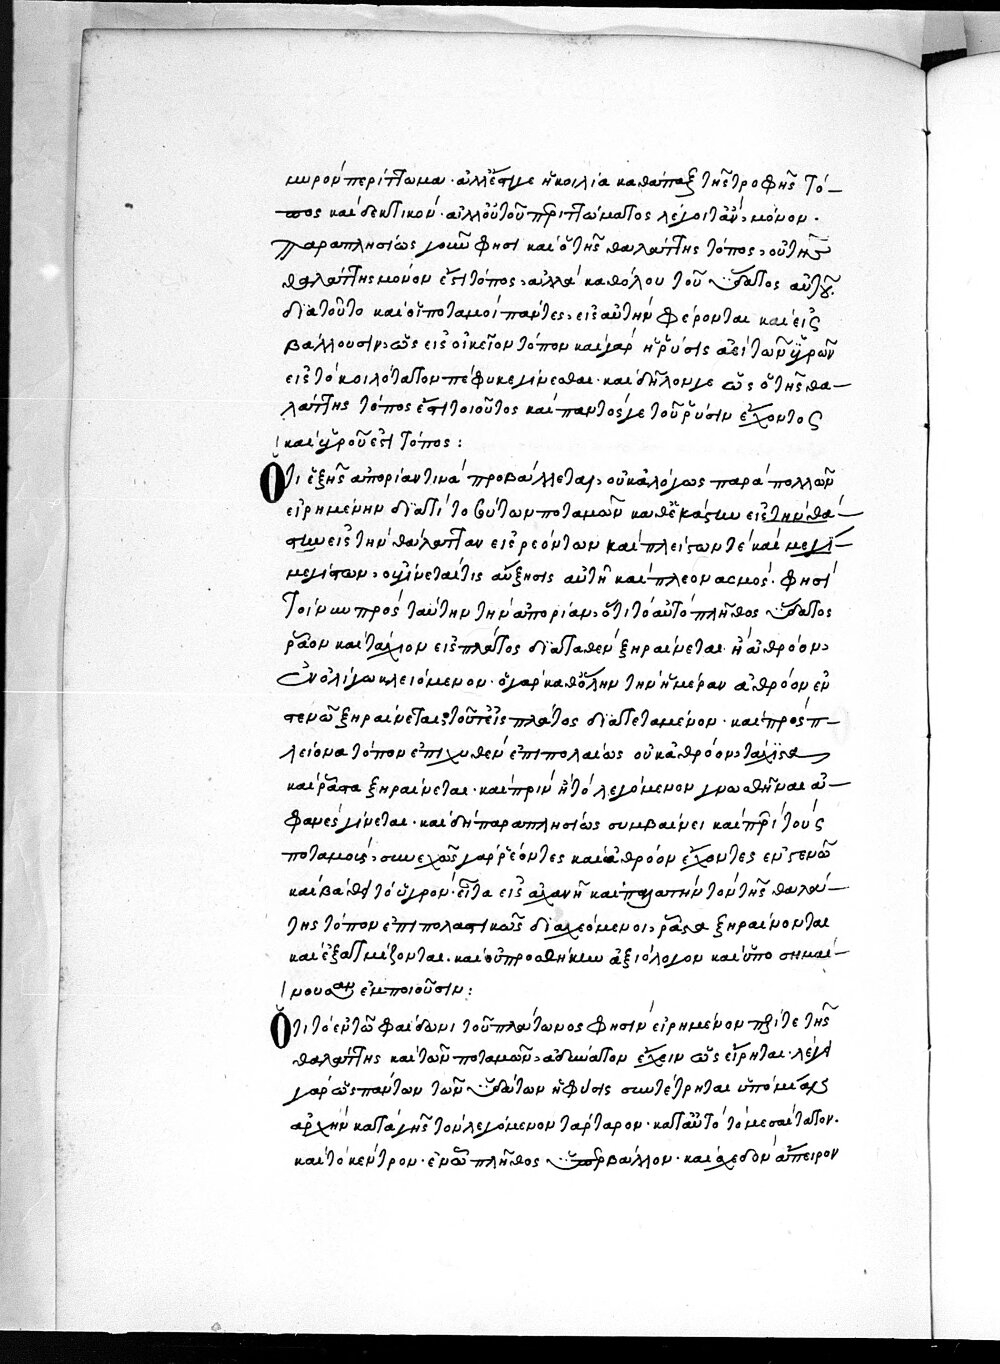 μυρὸν περίττωμα· ἀλλ' ἔστι γε ἡ κοιλία καθάπαξ τῆς τροφῆς τό-
πος καὶ δεκτικόν· ἀλλ' οὐ τοῦ περιττώματος λέγοιτ' ἂν μόνον·
παραπλησίως γοῦν φησι καὶ ὁ τῆς θαλάττης τόπος, οὐ τῆς
θαλάττης μόνον ἐστὶ τόπος, ἀλλὰ καθόλου τοῦ ὕδατος αὐτοῦ.
διὰ τοῦτο καὶ οἱ ποταμοὶ πάντες, εἰς αὐτὴν φέρονται καὶ εἰσ
βάλλουσιν, ὡς εἰς οἰκεῖον τόπον καὶ γὰρ ἡ ῥύσις ἀεὶ τῶν ὑγρῶν
εἰς τὸ κοιλότατον πέφυκε γίνεσθαι· καὶ δῆλόν γε ὡς ὁ τῆς θα-
λάττης τόπος ἐστὶ τοιοῦτος καὶ παντός γε τοῦ ῥύσιν ἔχοντος
καὶ ὑγροῦ ἐστὶ τόπος:
Ὅτι ἑξῆς ἀπορίαν τινὰ προβάλλεται, οὐκ ἀλόγως παρὰ πολλῶν
εἰρημένην διατί τοσούτων ποταμῶν καθ' ἑκάστην εἰς τὴν θά-
εἰς τὴν θάλατταν εἰσρεόντων καὶ πλείστων τὲ καὶ μεγί-
μεγίστων, οὐ γίνεταί τις αὔξησις αὐτῇ καὶ πλεονασμός. φησὶ
τοίνυν πρὸς ταύτην τὴν ἀπορίαν, ὅτι τὸ αὐτὸ πλῆθος ὕδατος
ῥᾷον καὶ τάχιον εἰς πλάτος διαταθὲν ξηραίνεται· ἢ ἀθρόον,
ἐν ὀλίγω κλειόμενον· ὃ γὰρ καθόλην τὴν ἡμέραν ἀθρόον ἐν
στενῶ ξηραίνεται, τοῦτ' εἰς πλάτος διατεταμένον· καὶ πρὸς π-
λείονα τόπον ἐπιχυθὲν ἐπιπολαίως οὐκ ἀθρόον, τάχιστα
καὶ ῥᾷστα ξηραίνεται· καὶ πρὶν ἢ τὸ λεγόμενον γνωσθῆναι ἀ-
φανὲς γίνεται· καὶ δὴ παραπλησίως συμβαίνει καὶ περὶ τοὺς
ποταμούς, συνεχῶς γὰρ ῥέοντες καὶ ἀθρόον ἔχοντες ἐν στενῶ
καὶ βάθει τὸ ὑγρόν· εἶτα εἰς ἀχανῆ καὶ τὸν τῆς θαλάτ-
της τόπον ἐπιπολαστικῶς διαχεόμενοι, ῥᾷστα ξηραίνονται
καὶ ἐξατμίζονται. καὶ οὐ προσθήκην ἀξιόλογον καὶ ὑπο σημαί-
νουσαν ἐμποιοῦσιν:
Ὅτι τὸ ἐν τῶ φαίδωνι τοῦ πλάτωνος φησὶν εἰρημένον περί τε τῆς
θαλάττης καὶ τῶν ποταμῶν, ἀδύνατον ἔχειν ὡς εἴρηται· λέγει
γὰρ ὡς πάντων τῶν ὑδάτων ἡ φύσις συντέτρηται ὑπὸ μίαν
ἀρχὴν κατὰ γῆς τὸν λεγόμενον τάρταρον· κατ' αὐτὸ τὸ μεσαίτατον.
καὶ τὸ κέντρον· ἐν ὧ πλῆθος ὑπερβάλλον· καὶ σχεδὸν ἄπειρον